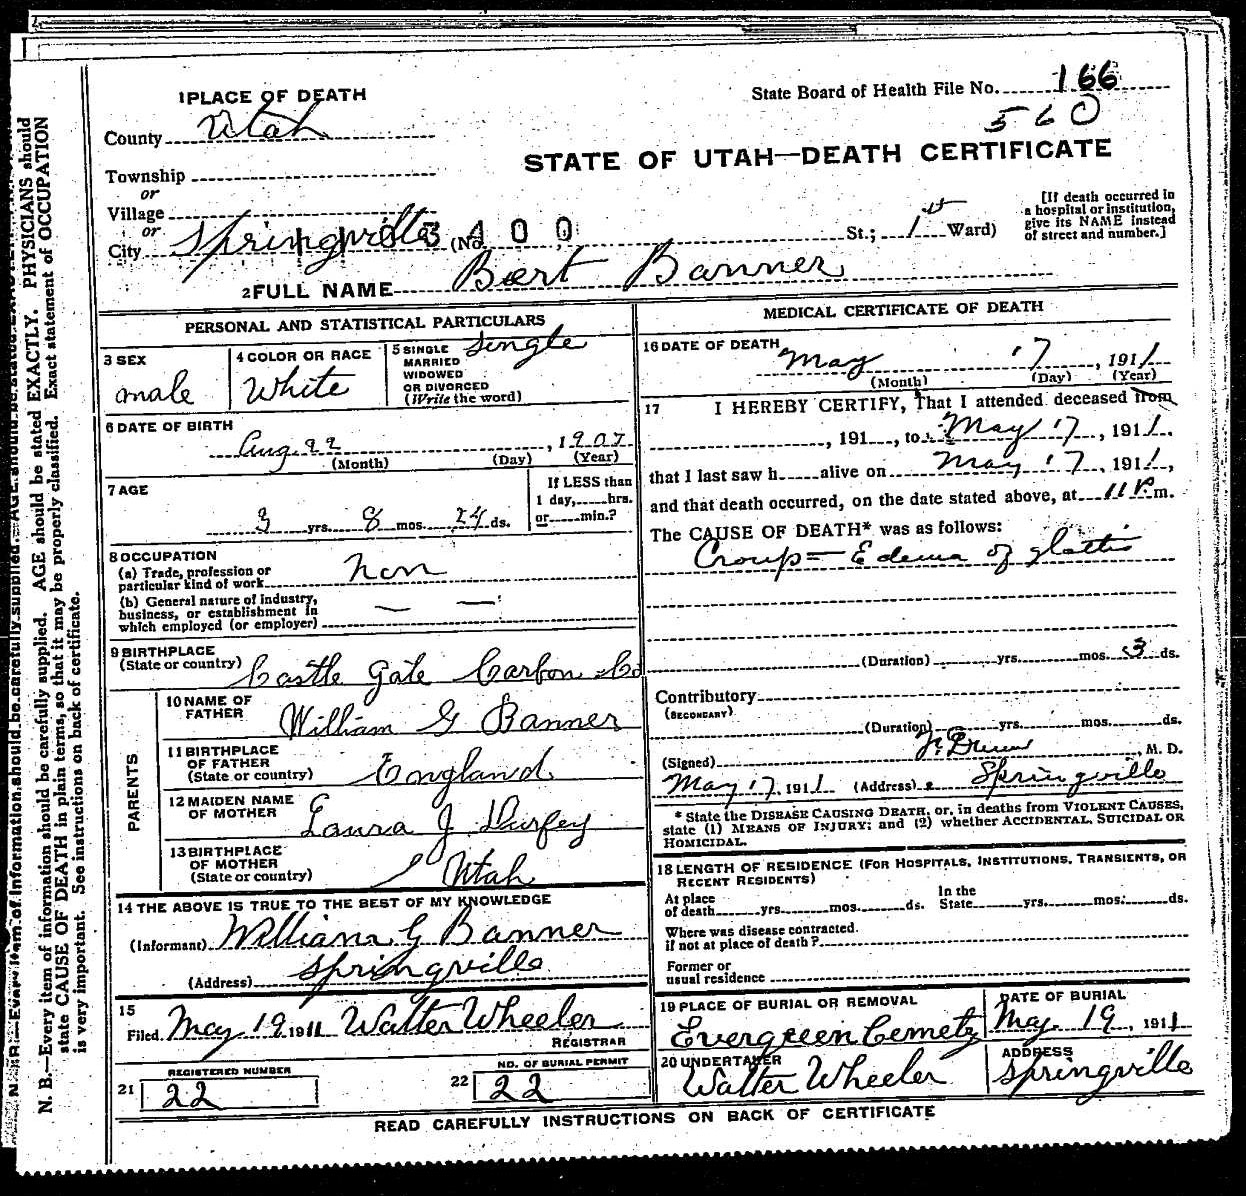 1 PLACE OF DEATH
State Board of Health File No. 166
560
County Utah
STATE OF UTAH—DEATH CERTIFICATE
Township
or
Village
or
City Springville (No. St.; 1st Ward)
1103400
[If death occurred in
a hospital or institution,
give its NAME instead
of street and number.]
2 FULL NAME Bert Banner
PERSONAL AND STATISTICAL PARTICULARS
3 SEX
male
4 COLOR OR RACE
White
5 SINGLE
MARRIED
WIDOWED
OR DIVORCED
(Write the word)
Single
6 DATE OF BIRTH
Aug. 22, 1907
(Month) (Day) (Year)
7 AGE
3 yrs. 8 mos. 24 ds.
If LESS than
1 day, hrs.
or min.?
8 OCCUPATION
(a) Trade, profession or
particular kind of work Non
(b) General nature of industry,
business, or establishment in
which employed (or employer) — —
9 BIRTHPLACE
(State or country) Castle Gate Carbon Co
PARENTS
10 NAME OF
FATHER William G Banner
11 BIRTHPLACE
OF FATHER
(State or country) England
12 MAIDEN NAME
OF MOTHER Laura J Durfey
13 BIRTHPLACE
OF MOTHER
(State or country) Utah
14 THE ABOVE IS TRUE TO THE BEST OF MY KNOWLEDGE
(Informant) William G Banner
(Address) Springville
15
Filed May 19 1911 Walter Wheeler
REGISTRAR
REGISTERED NUMBER
21 22
NO. OF BURIAL PERMIT
22 22
MEDICAL CERTIFICATE OF DEATH
16 DATE OF DEATH
May 17, 1911
(Month) (Day) (Year)
17 I HEREBY CERTIFY, That I attended deceased from
, 191 , to May 17, 1911.
that I last saw h alive on May 17, 1911,
and that death occurred, on the date stated above, at 11 P. m.
The CAUSE OF DEATH* was as follows:
Croup = Edema of glottis
(Duration) yrs. mos. 3 ds.
Contributory
(SECONDARY)
(Duration) yrs. mos. ds.
(Signed) , M. D.
May 17, 1911 (Address) Springville
* State the DISEASE CAUSING DEATH, or, in deaths from VIOLENT CAUSES,
state (1) MEANS OF INJURY; and (2) whether ACCIDENTAL, SUICIDAL OR
HOMICIDAL.
18 LENGTH OF RESIDENCE (FOR HOSPITALS, INSTITUTIONS, TRANSIENTS, OR
RECENT RESIDENTS)
At place
of death yrs. mos. ds.
In the
State yrs. mos. ds.
Where was disease contracted.
if not at place of death?
Former or
usual residence
19 PLACE OF BURIAL OR REMOVAL
Evergreen Cemety
DATE OF BURIAL
May. 19, 1911
20 UNDERTAKER
Walter Wheeler
ADDRESS
Springville
READ CAREFULLY INSTRUCTIONS ON BACK OF CERTIFICATE
N. B.—Every item of information should be carefully supplied. AGE should be stated EXACTLY. PHYSICIANS should
state CAUSE OF DEATH in plain terms, so that it may be properly classified. Exact statement of OCCUPATION
is very important. See instructions on back of certificate.